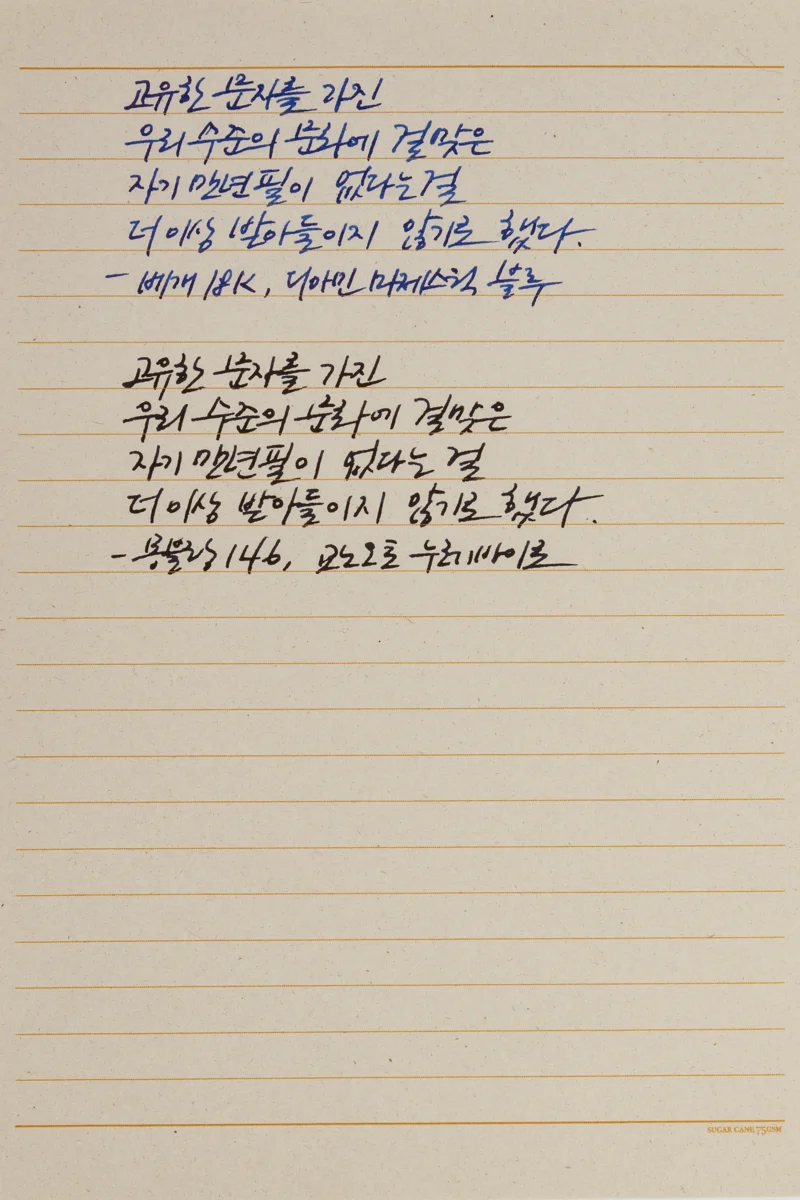 고유한 문자를 가진
우리 수준의 문화에 걸맞은
자기 만년필이 없다는 걸
더 이상 받아들이지 않기로 했다.
- 베개 18K, 디아민 마제스틱 블루
고유한 문자를 가진
우리 수준의 문화에 걸맞은
자기 만년필이 없다는 걸
더 이상 받아들이지 않기로 했다.
- 몽블랑 146, 교노오토 누레바이로
SUGAR CANE 75GSM